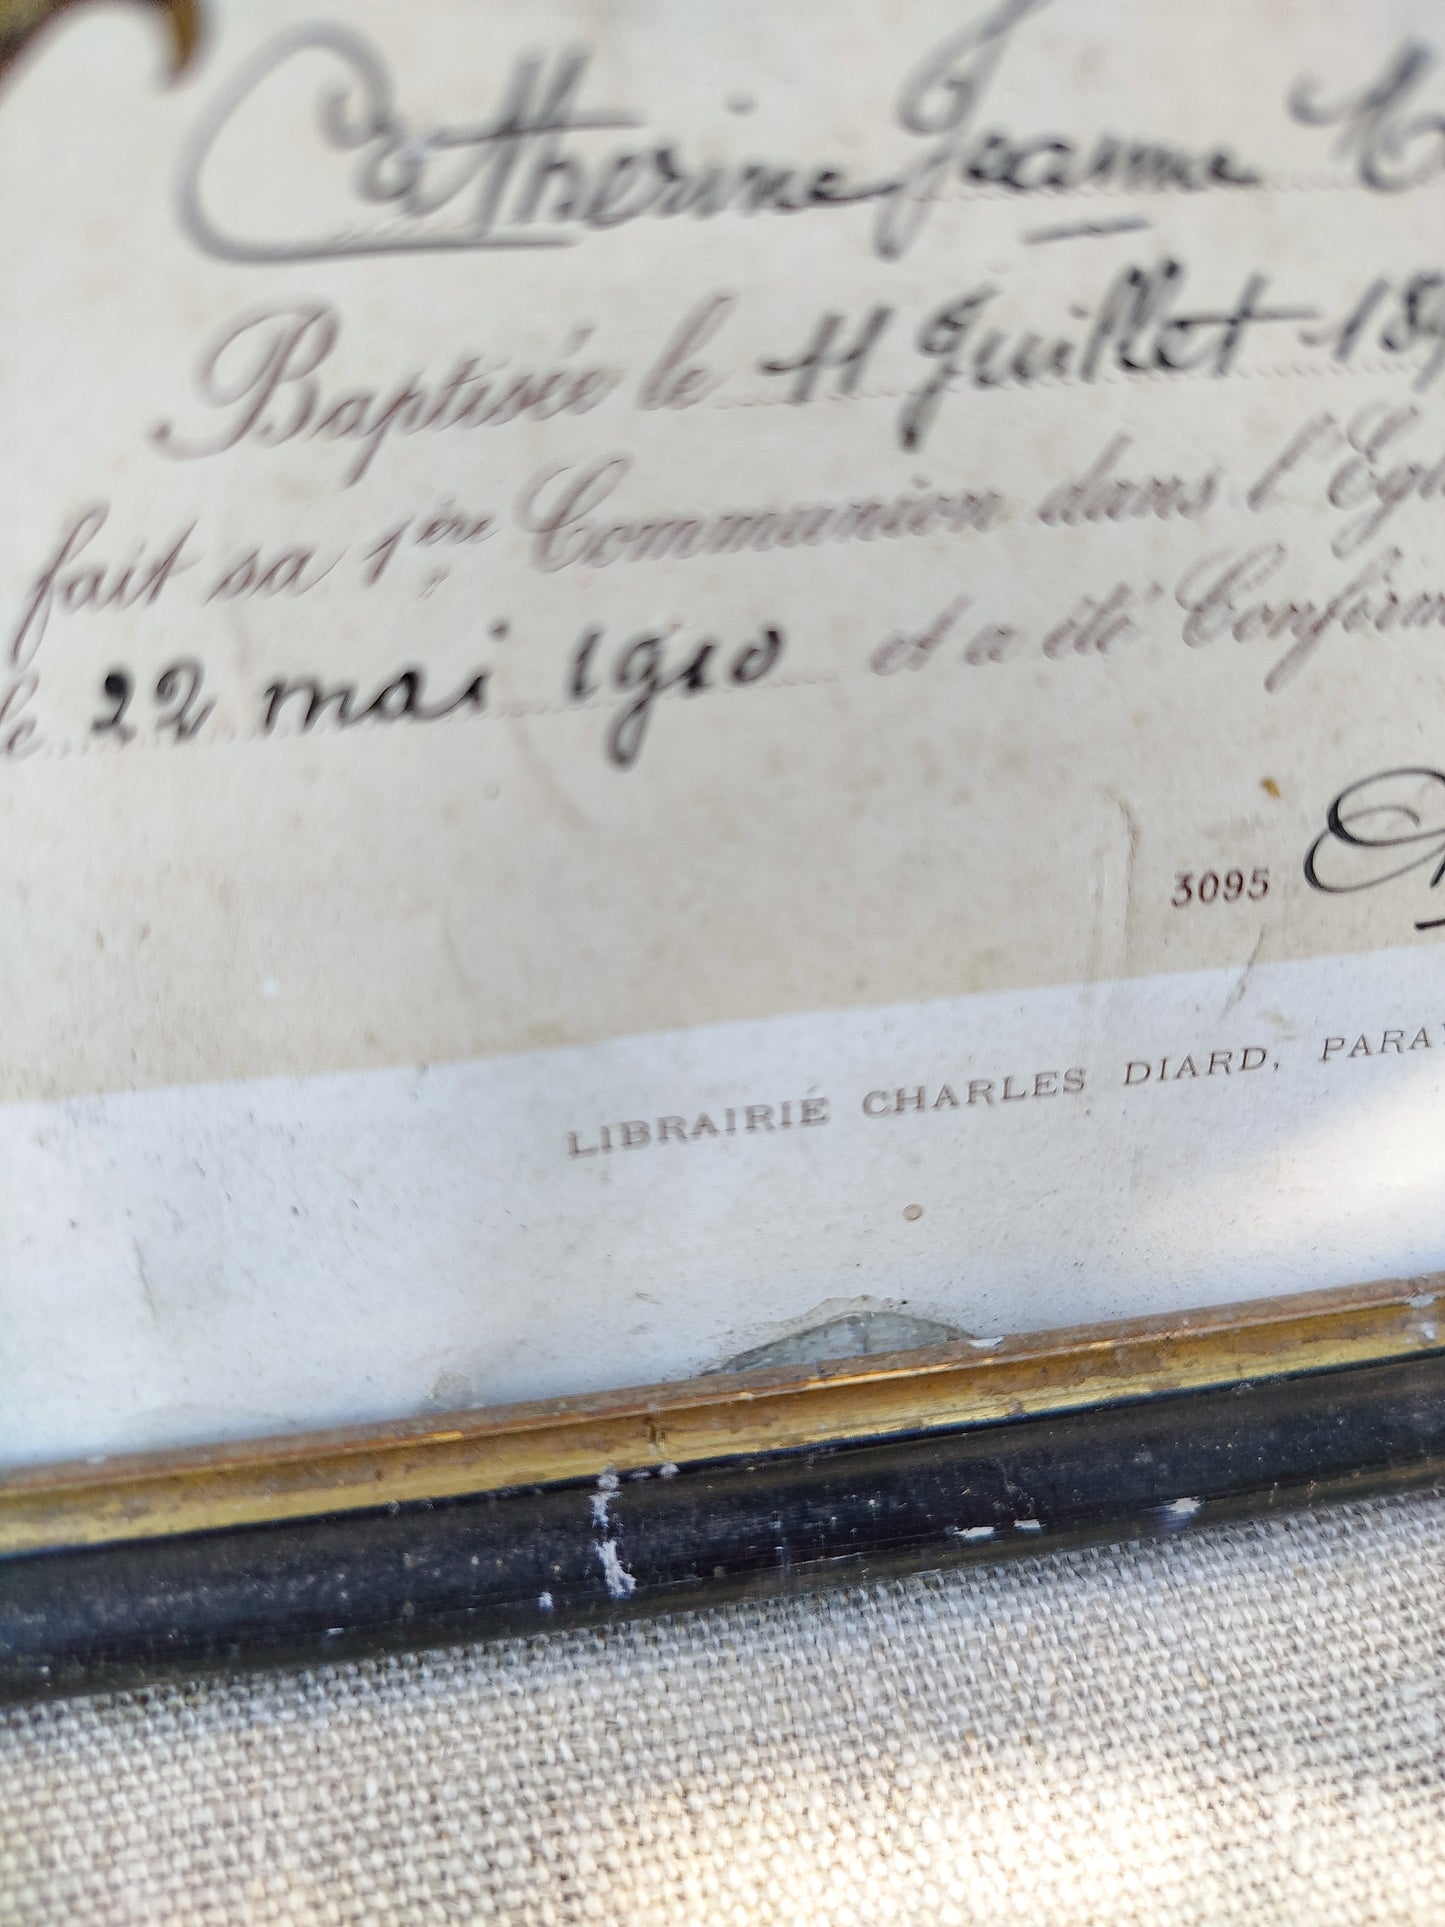 Catherine Jeanne
Baptisée le 11 Juillet 189
fait sa 1ère Communion dans l'Egl
le 22 mai 1910 et a été Confirm
3095
LIBRAIRIE CHARLES DIARD, PARAY